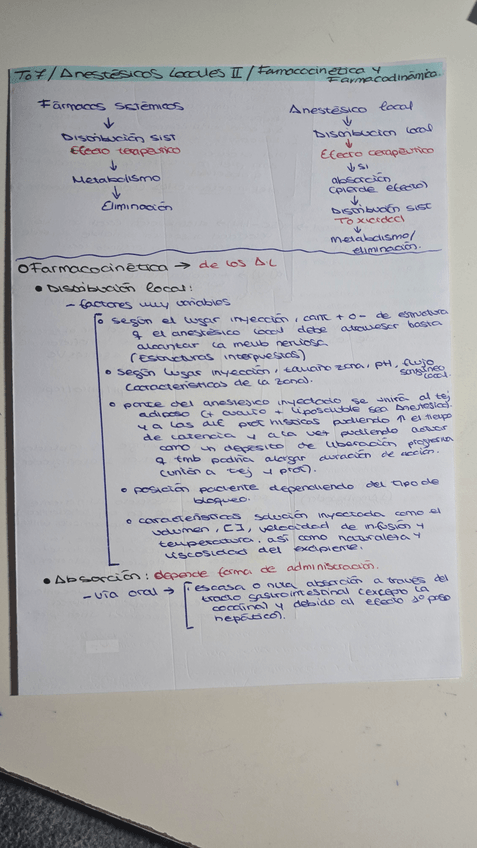 To7/Anestésicos Locales II/Farmacocinética y
Farmacodinámica.
Fármacos sistémicos
↓
Distribución sist
Efecto terapéutico
↓
Metabolismo
↓
Eliminación
Anestésico local
↓
Distribución local
↓
Efecto terapéutico
↓ si
absorción
(pierde efecto)
↓
Distribución sist
Toxicidad
↓
metabolismo/
eliminación.
Farmacocinética → de los A.L
• Distribución local:
- factores muy variables
según el lugar inyección, cant + o - de estructura
q el anestésico local debe atravesar hasta
alcanzar la meta nerviosa
(Estructuras interpuestas)
según lugar inyección, tamaño zona, pH, flujo
sanguíneo
local.
(características de la zona).
parte del anestésico inyectado se unirá al tej
adiposo (+ cuanto + liposoluble sea Anestésico)
y a las dif prot hísticas pudiendo ↑ el tiempo
de latencia y a la vez pudiendo actuar
como un depósito de liberación progresiva
q tmb podría alargar duración de acción.
(unión a tej y prot).
posición paciente dependiendo del tipo de
bloqueo.
características solución inyectada como el
volumen, [ ], velocidad de infusión y
temperatura. así como naturaleza y
viscosidad del excipiente.
• Absorción: depende forma de administración.
- vía oral → escasa o nula absorción a través del
tracto gastrointestinal (excepto la
cocaína) y debido al efecto 1º paso
hepático).